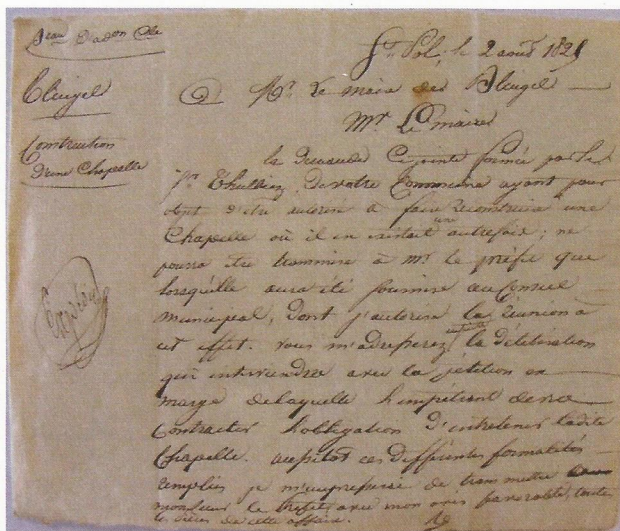 St. Pol, le 2 août 1821
Blingel
Mr. Le maire de Blingel
Construction
d'une Chapelle
Mr Le Maire
La demande Cy jointe formée par le
Sr Thulliez de votre Commune ayant pour
objet d'être autorisé à faire reconstruire une
Chapelle où il en existait une autrefois ; ne
pourra être transmise à Mr. le préfet que
lorsqu'elle aura été soumise au Conseil
municipal, dont j'autorise la Réunion à
cet effet. vous m'adresserez la délibération
qui interviendra avec la pétition en
marge de laquelle l'impétrant devra
Contracter l'obligation d'entretenir ladite
Chapelle. aussitôt ces différentes formalités
remplies je m'empresserai de transmettre
monsieur le Préfet avec mon avis favorable, toutes
les pièces de cette affaire.